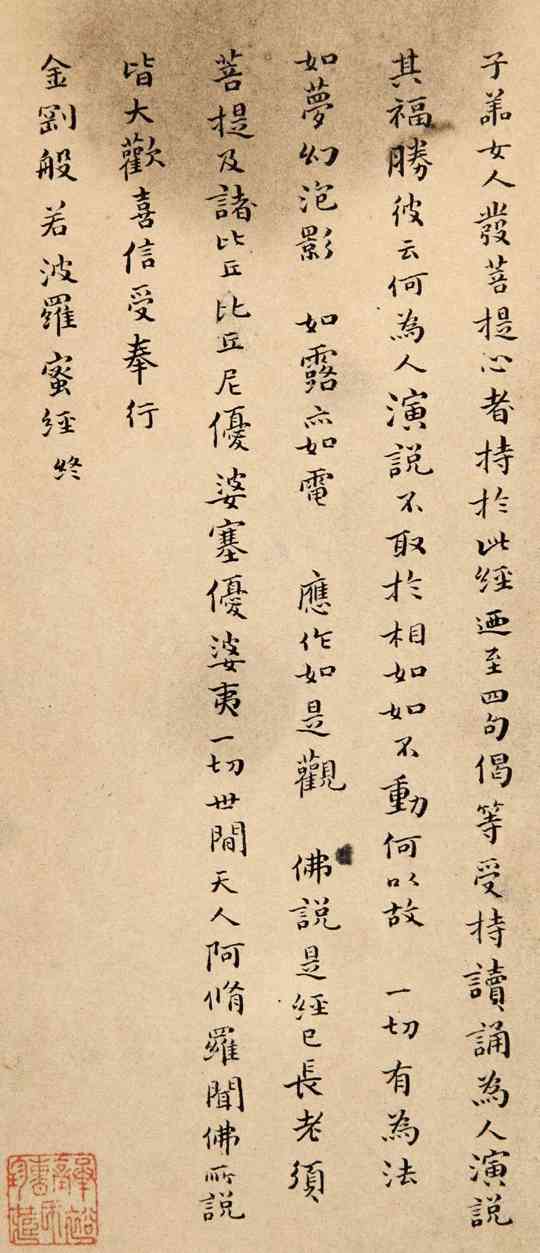 子弟女人發菩提心者持於此經迺至四句偈等受持讀誦為人演說
其福勝彼云何為人演說不取於相如如不動何以故 一切有為法
如夢幻泡影 如露亦如電 應作如是觀 佛說是經已長老須
菩提及諸比丘比丘尼優婆塞優婆夷一切世間天人阿脩羅聞佛所說
皆大歡喜信受奉行
金剛般若波羅蜜經終